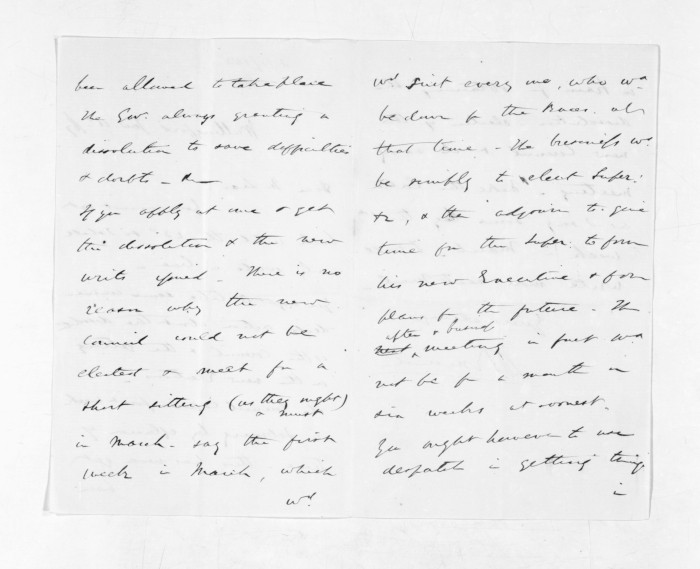 been allowed to take place
the Gov. always granting a
dissolution to save difficulties
& doubts -
If you apply at once & get
the dissolution & the new
writs issued. There is no
reason why the new
Council could not be
elected & meet for a
short sitting (as they might)
& must
in March - say the first
week in March, which
wd
wd suit every one, who wd
be down for the Races at
that time - The business wd
be simply to elect Super:
&c, & then adjourn to give
time for the Super. to form
his new Executive & form
plans for the future - The
after & business
next meeting in fact wd
not be for a month or
six weeks at soonest.
You ought however to use
despatch in getting things
in